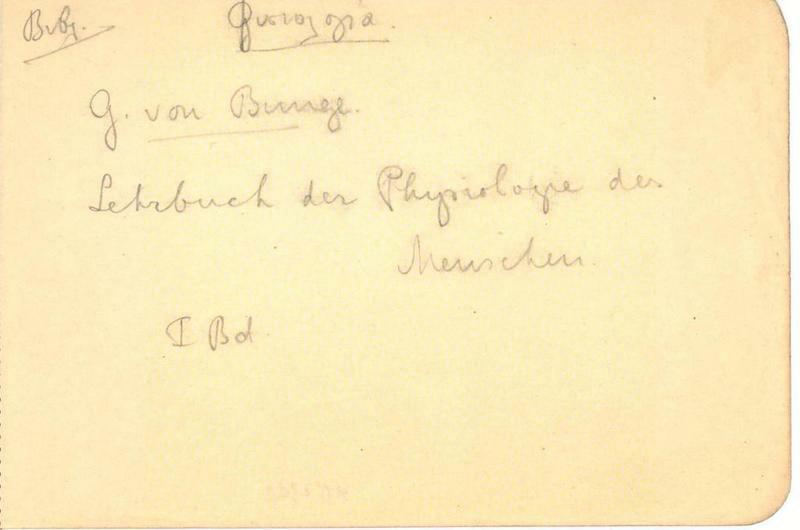 Βιβλ. Φυσιολογία.
G. von Bunge.
Lehrbuch der Physiologie des
Menschen.
I Bd